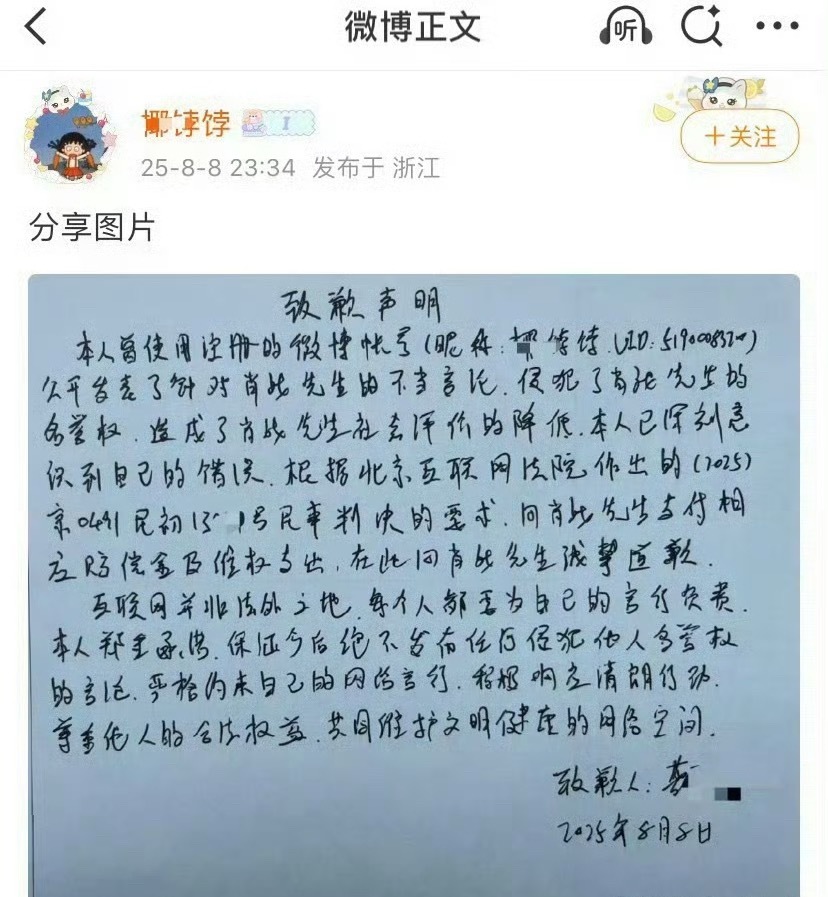 微博正文
听
饽饽
I
+关注
25-8-8 23:34 发布于 浙江
分享图片
致歉声明
本人曾使用注册的微博帐号(昵称: 饽饽.UID:
公开发表了针对肖战先生的不当言论,侵犯了肖战先生的
名誉权,造成了肖战先生社会评价的降低.本人已深刻意
识到自己的错误.根据北京互联网法院作出的(2025)
京0491民初 号民事判决的要求,向肖战先生支付相
应赔偿金及维权支出,在此向肖战先生诚挚道歉.
互联网并非法外之地,每个人都要为自己的言行负责.
本人郑重承诺,保证今后绝不发布任何侵犯他人名誉权
的言论,严格约束自己的网络言行,积极响应清朗行动.
尊重他人的合法权益,共同维护文明健康的网络空间.
致歉人:
2025年8月8日